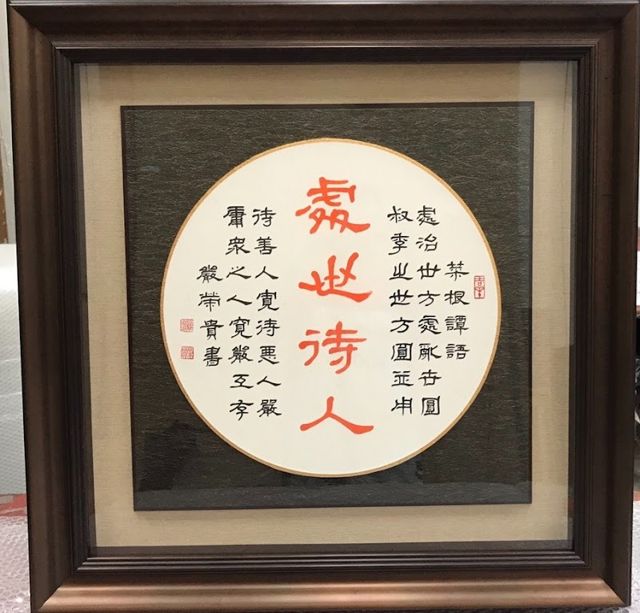 菜根譚語
處治世方處亂世圓
叔季之世方圓並用
處世待人
待善人寬待惡人嚴
庸眾之人寬嚴互存
嚴榮貴書